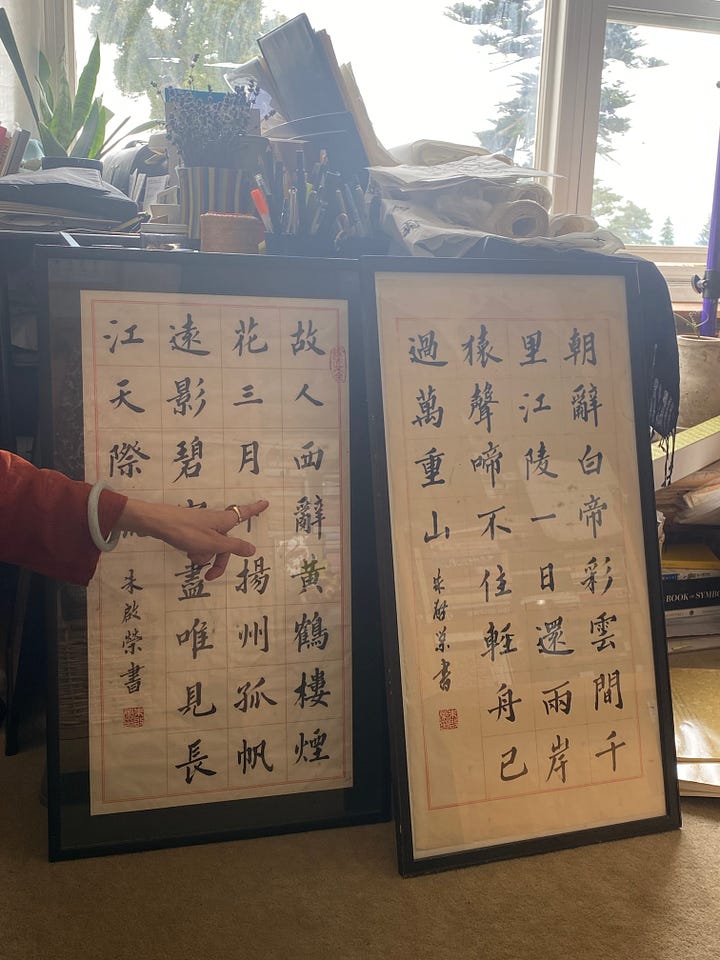 故人西辭黃鶴樓煙
花三月揚州孤帆
遠影碧盡唯見長
江天際
朱啟榮書
朝辭白帝彩雲間千
里江陵一日還兩岸
猿聲啼不住輕舟已
過萬重山
朱啟榮書
BOOK OF SYMBO